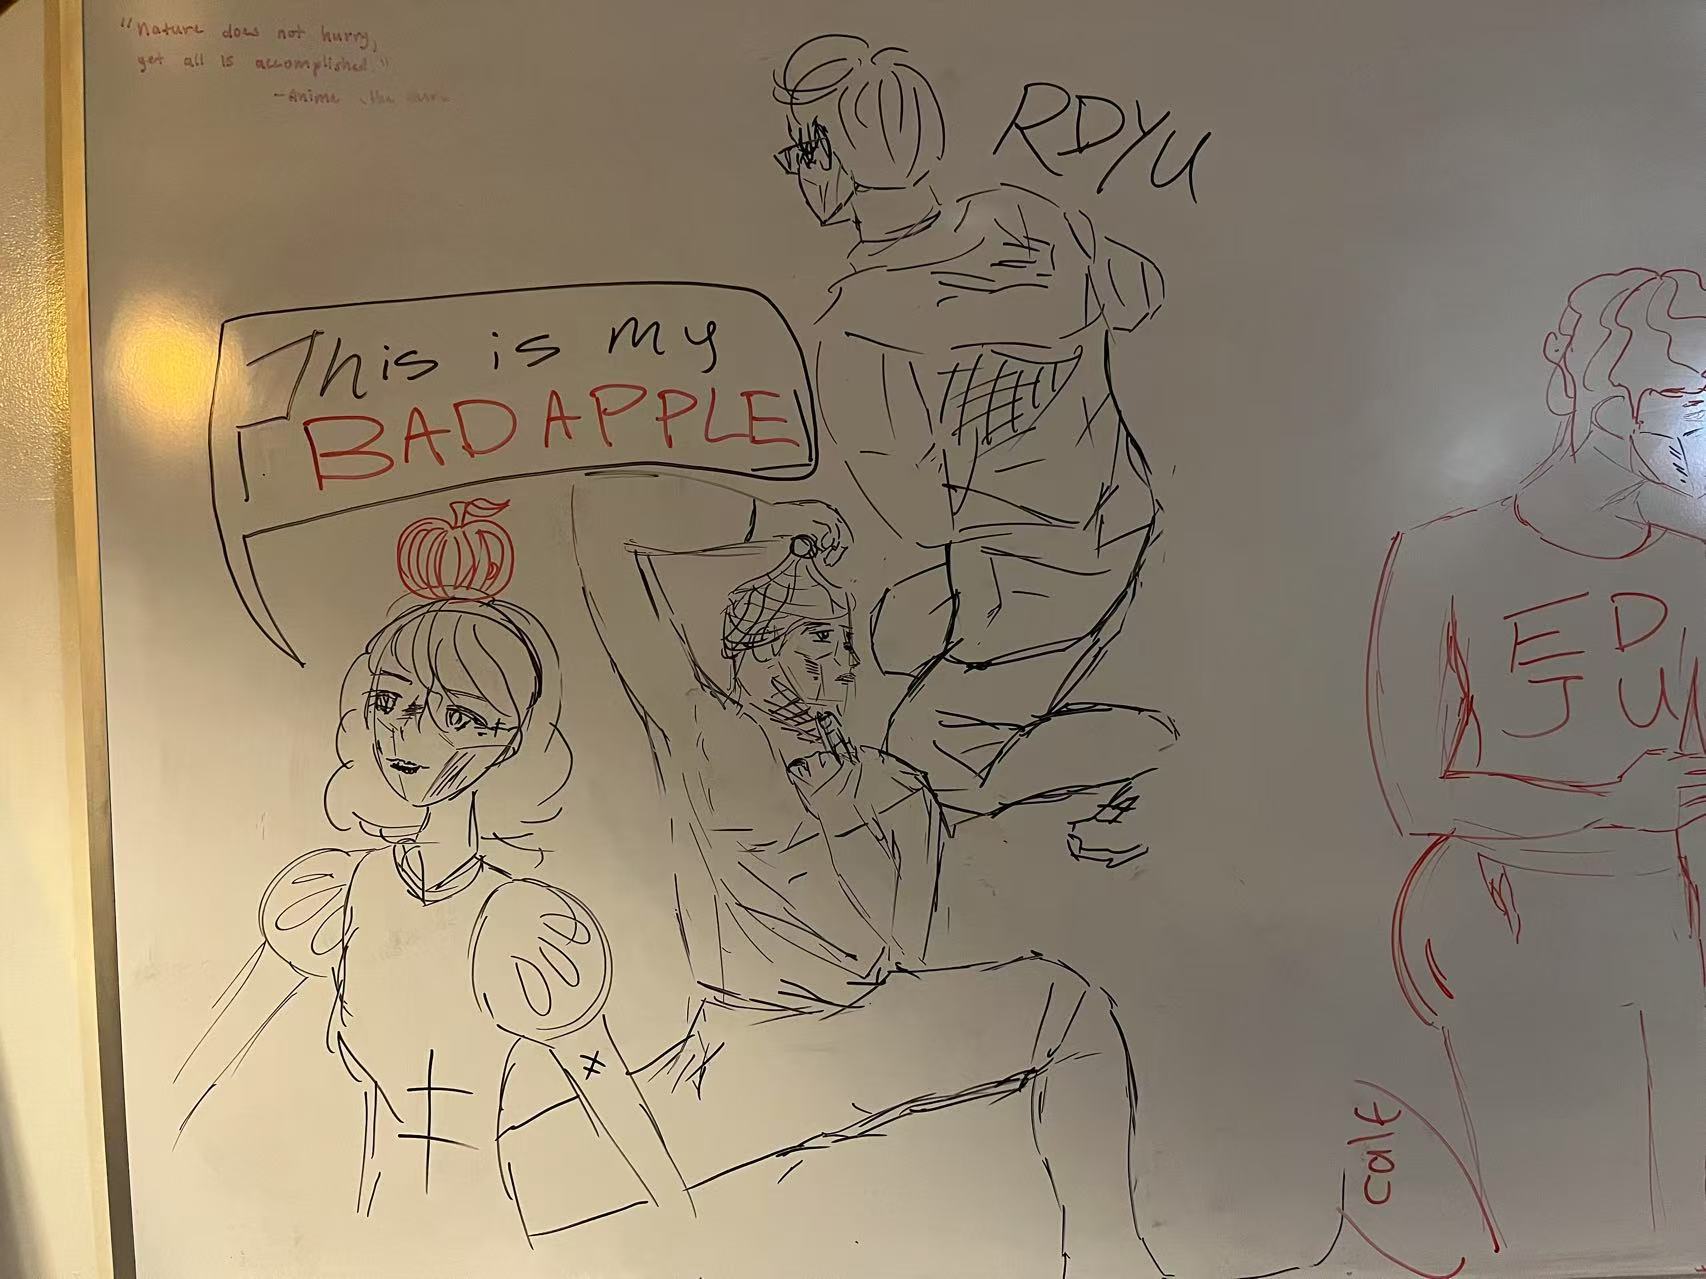 "Nature does not hurry,
yet all is accomplished."
-Anime
RDYU
This is my
BAD APPLE
ED
JU
calf